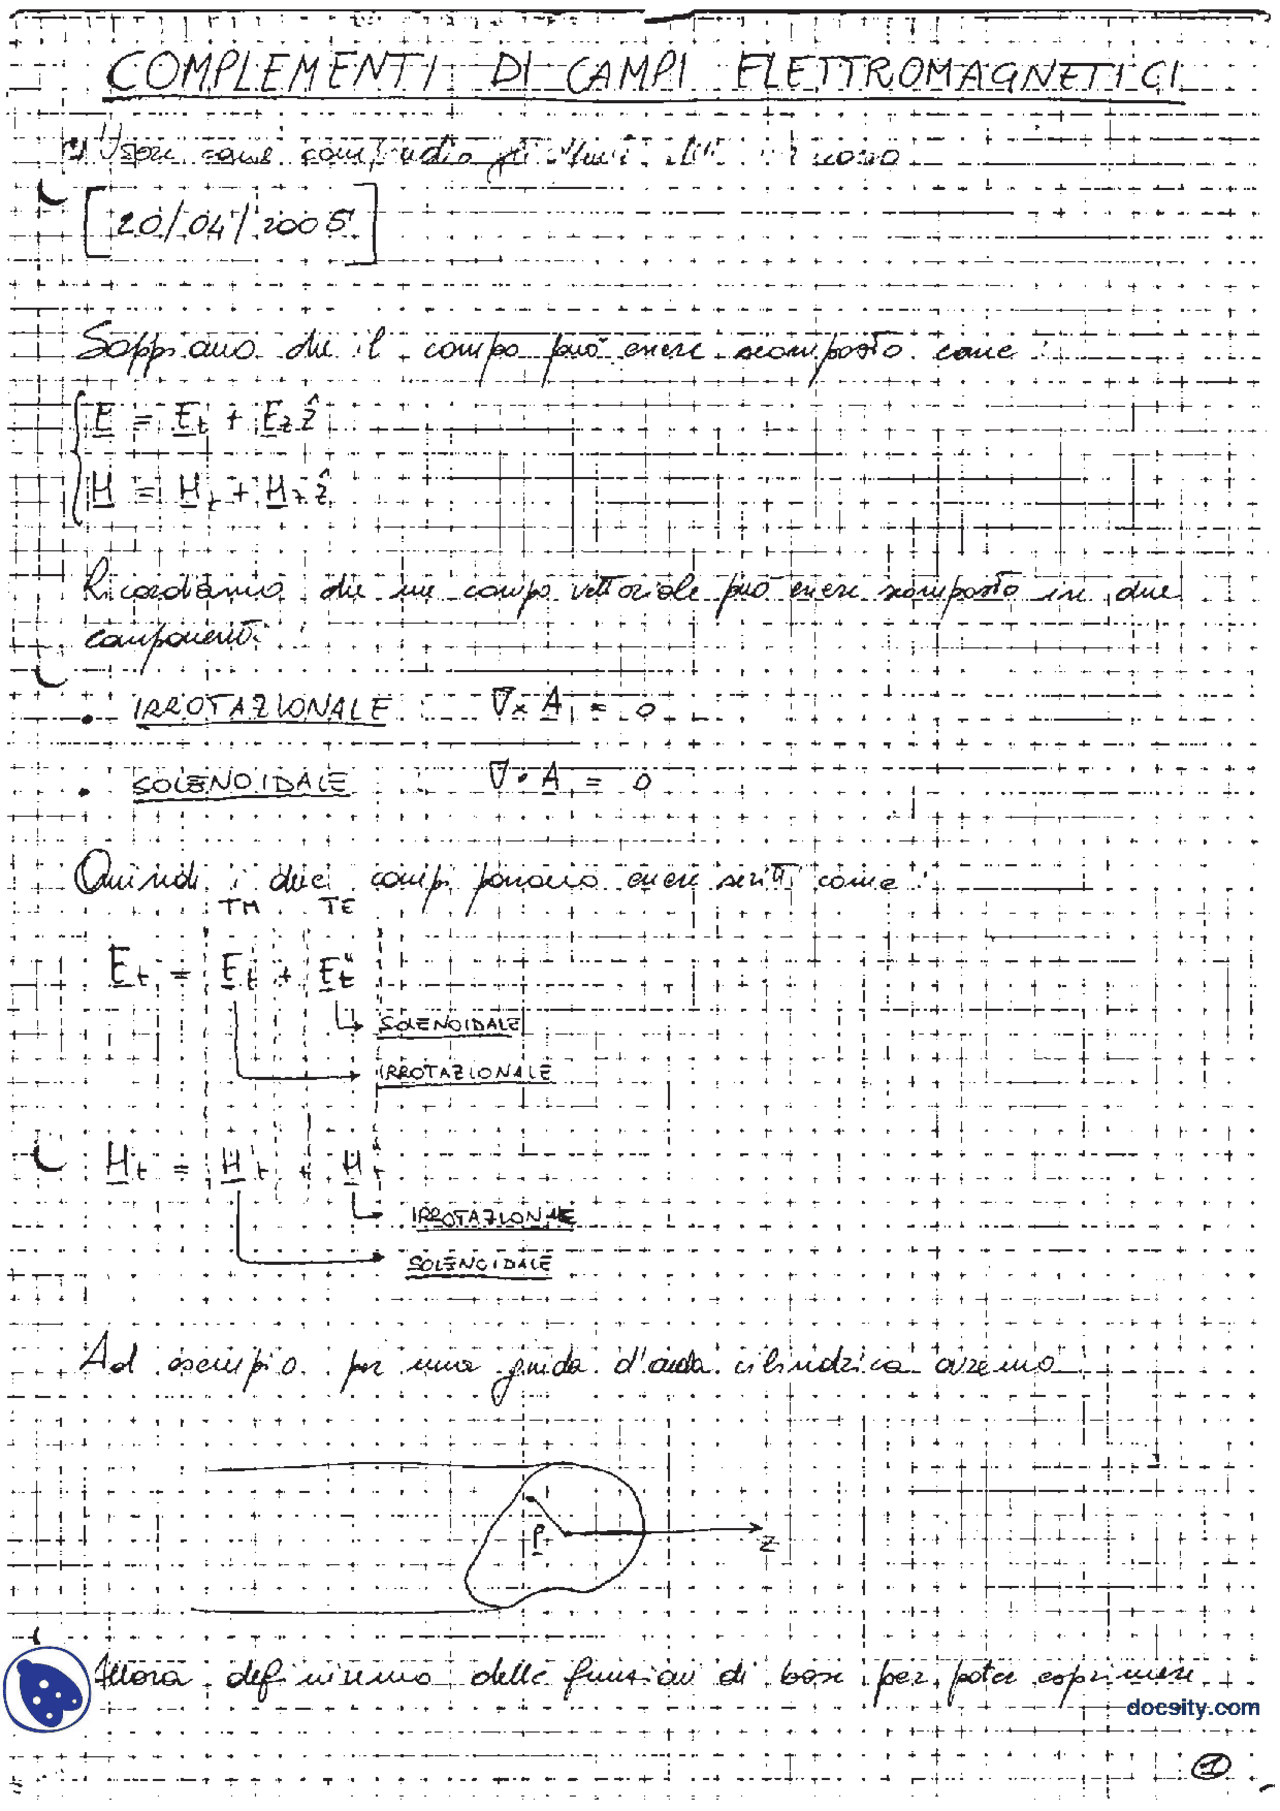 COMPLEMENTI DI CAMPI ELETTROMAGNETICI
Usare come
[20/04/2005]
Sappiamo che il campo può essere scomposto come :
E = Et + Ez ẑ
H = Ht + Hz ẑ
Ricordiamo che un campo vettoriale può essere scomposto in due
componenti:
• IRROTAZIONALE : ∇ × A = 0
• SOLENOIDALE : ∇ • A = 0
Quindi i due campi possono essere scritti come :
TM TE
Et = Et' + Et''
SOLENOIDALE
IRROTAZIONALE
Ht = Ht' + Ht''
IRROTAZIONALE
SOLENOIDALE
Ad esempio per una guida d'onda cilindrica avremo
ρ
z
Allora definiremo delle funzioni di base per poter esprimere
docsity.com
1